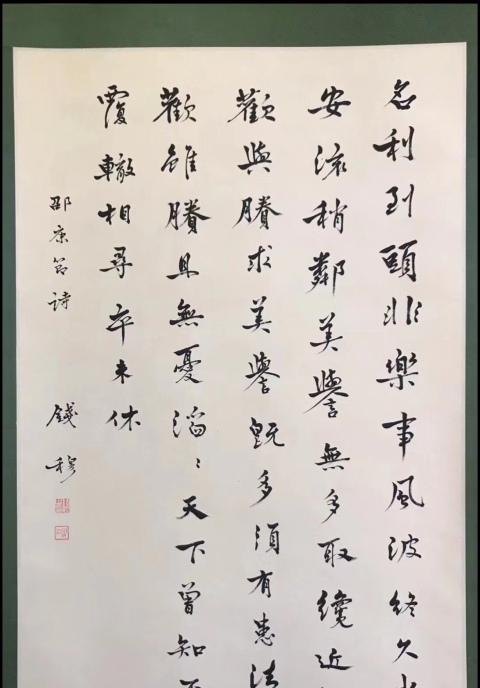 名利到頭非樂事風波終久少
安流稍鄰美譽無多取纔近
歡與賸求美譽既多須有患清
歡雖賸且無憂滔〻天下曾知否
覆轍相尋卒未休
邵康節詩 錢穆